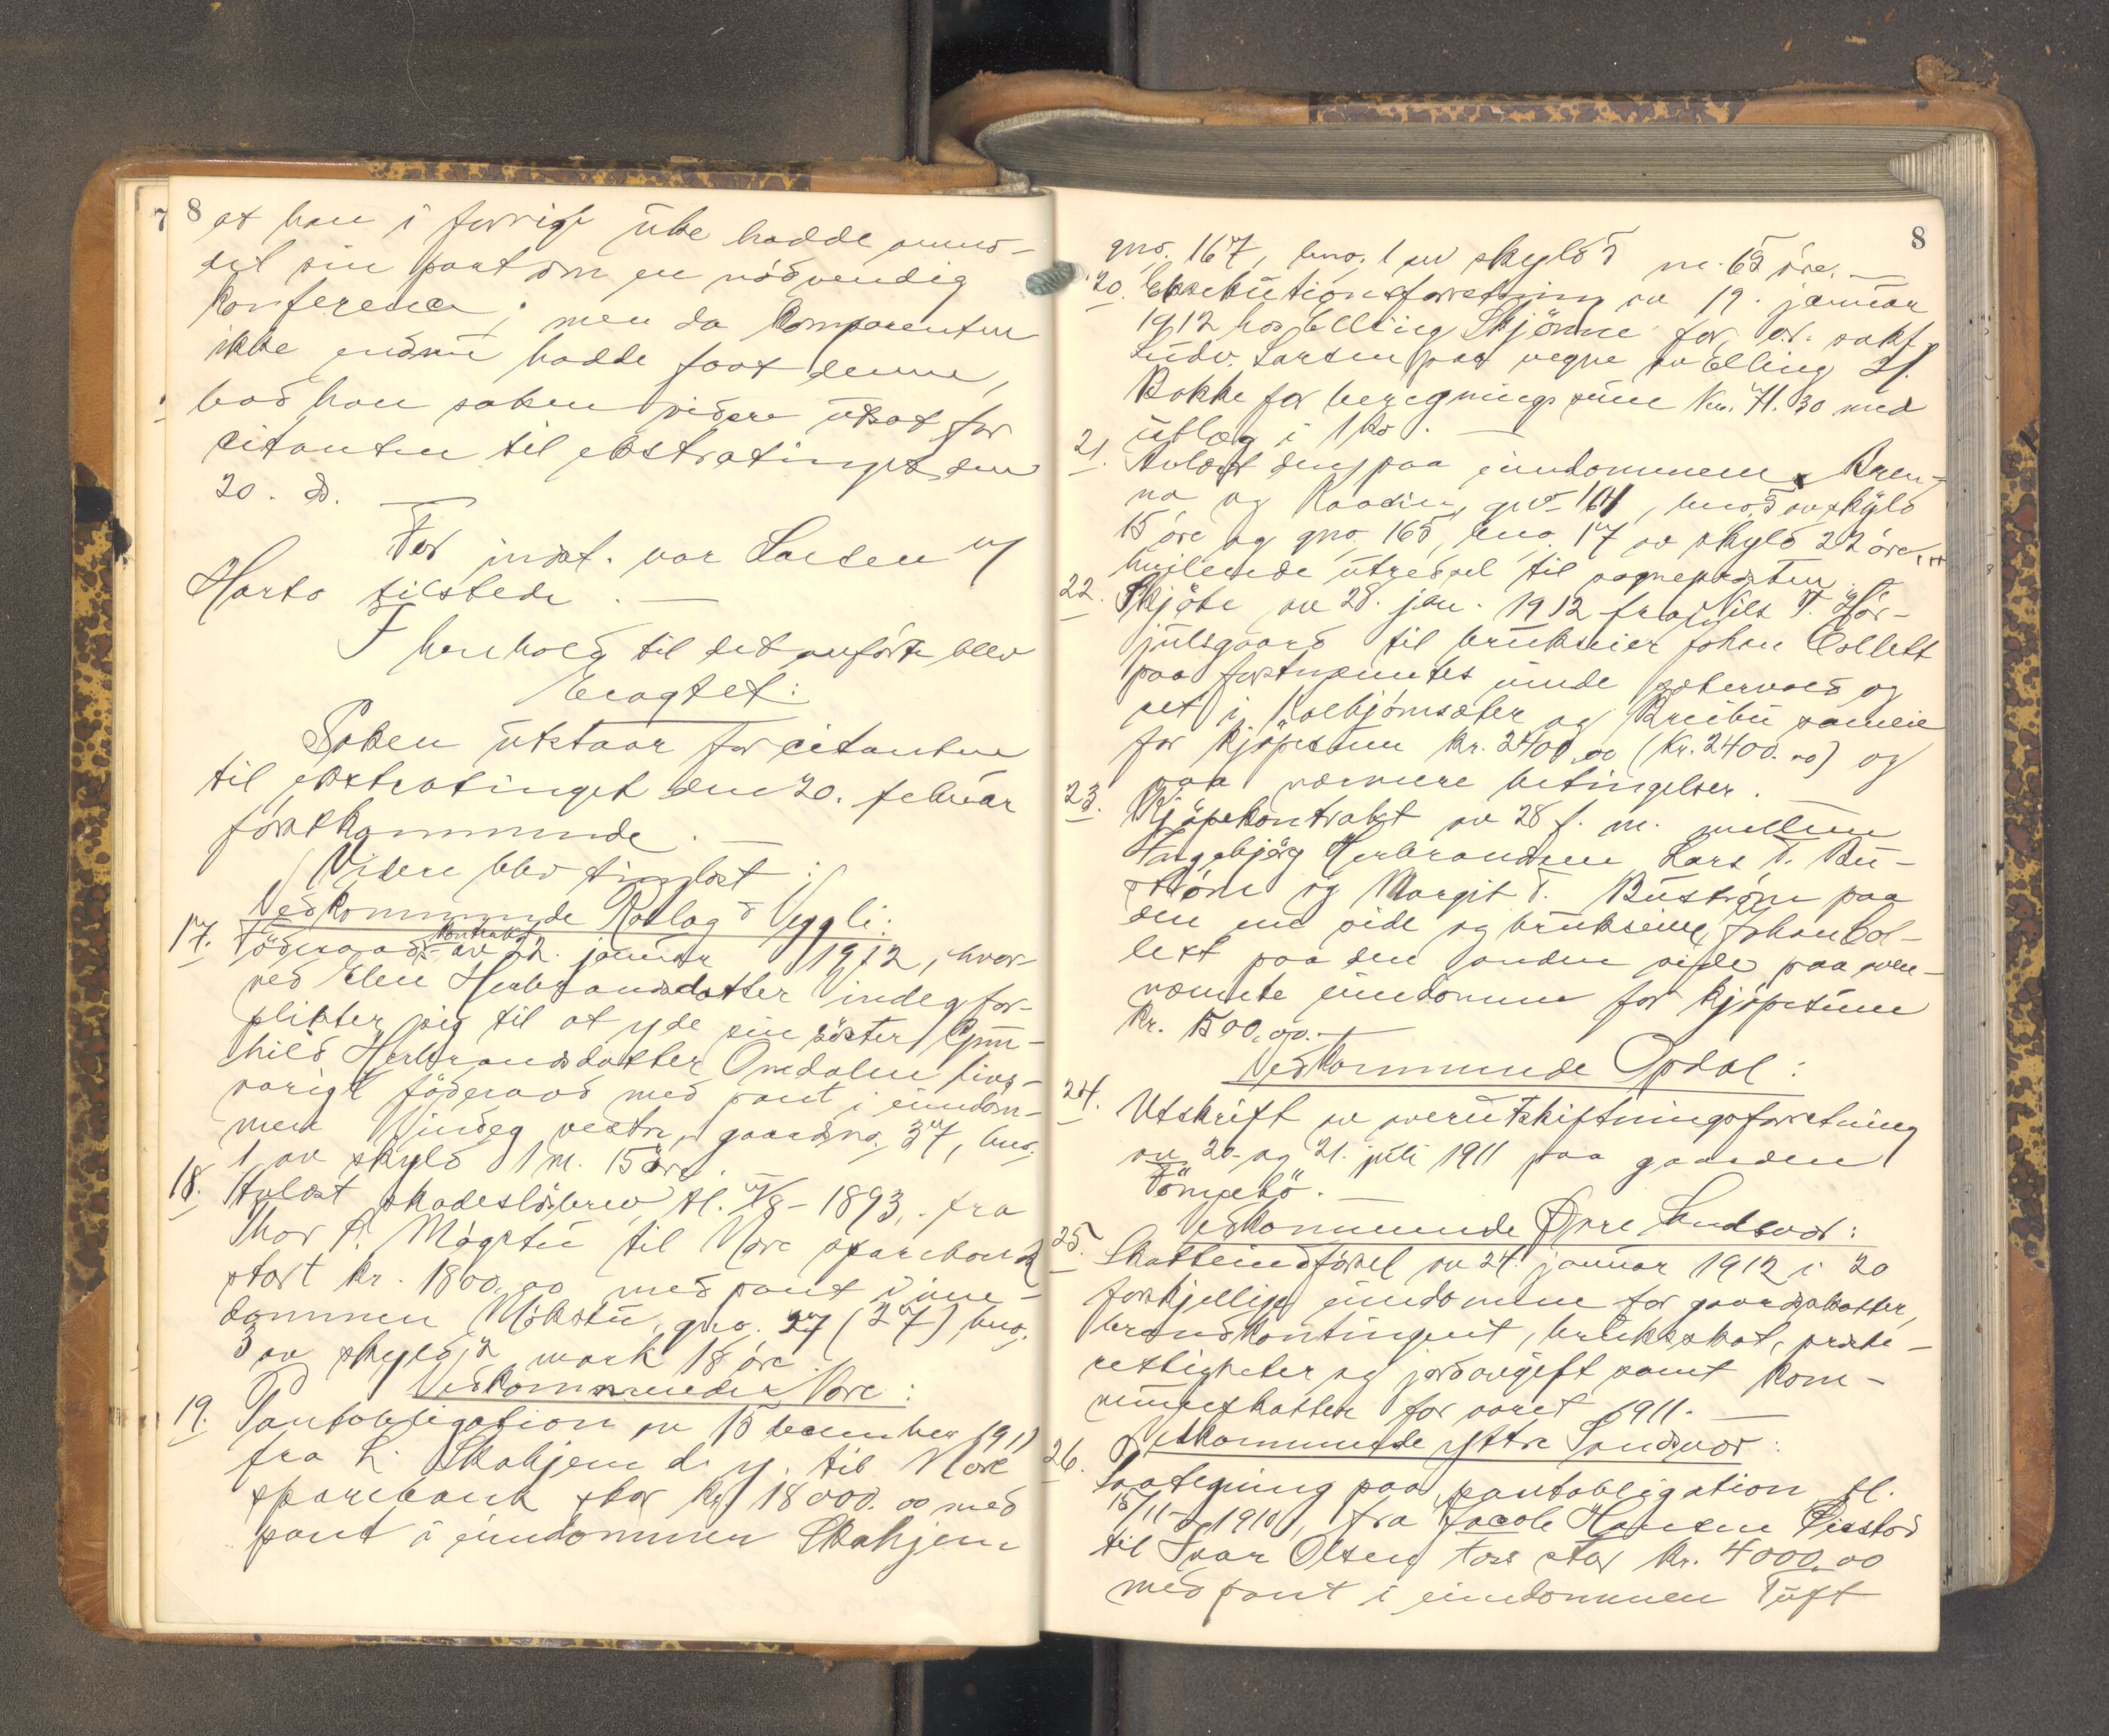 8
at han i forrige uke hadde anmo-
det sin part om en nödvendig
konference; men da komparenten
ikke endnu hadde faat denne,
bad han saken videre utsat for
citanten til ekstratinget den
20. ds.
For indst. var Larsen og
Harto tilstede.
I henhold til det anförte blev
Eragtet:
Saken utstaar for citanten
til ekstratinget den 20. februar
förstkommende.
Videre blev tinglæst:
Vedkommende Rollag o Veggli:
17. Föderaads kontrakt av 22. januar 1912, hvor-
ved Elen Herbrandsdatter Vindeg for-
plikter sig til at yde sin söster Gun-
hild Herbrandsdatter Omdalen livs-
varigt föderaad med pant i eiendom-
men Vindeg vestre, gaardsno. 37, bno.
1 av skyld 1 m. 15 öre.
18. Avlæst skadeslösbrev tl. 7/8 - 1893, fra
Thor P. Mogstu til Nore sparebank
stort kr. 1800.00 med pant i eien-
dommen Mökstu, gno. 27 (27) bno.
3 av skyld 2 mark 18 öre.
Vedkommende Nore:
19. Pantobligation av 15 december 1911
fra L. Skahjem d. y. til Nore
sparebank stor kr. 18000.00 med
pant i eiendommen Skahjem
8
gno. 167, bno. 1 av skyld 5 m. 65 öre.
20. Eksekutionsforretning av 19. januar
1912 hos Elling Skjönne for o.r. sakf.
Ludv. Larsen paa vegne av Elling H.
Bakke for beregningssum Kr. 71.30 med
utlæg i 1 ko.
21. Avlæst den paa eiendommene Bren-
na og Raaden, gno 164, bno. 5 av skyld
15 öre og gno. 165, bno. 17 av skyld 22 öre
hvilende utredsel til sogneprästen.
22. Skjöte av 28. jan. 1912 fra Nils T. Hör-
julsgaard til brukseier Johan Collett
paa fortnæmtes unde sætervold og
ret i Kolbjörnsæter og Breibu sameie
for kjöpesum kr. 2400.00 (kr. 2400.00) og
paa nærmere betingelser.
23. Kjöpekontrakt av 28 f. m. mellem
Ingebjörg Herbrandsen Lars T. Bu-
ström og Margit T. Buström paa
den ene side og brukseier Johan Col-
lett paa den anden side paa oven-
nævnte eiendomme for kjöpesum
Kr. 1500.00.
Vedkommende Opdal:
24. Utskrift av overutskiftningsforretning
av 20. og 21. juli 1911 paa gaarden
Töngebö.
Vedkommende Övre Sandsvær:
25. Skatteindförsel av 24. januar 1912 i 20
forskjellige eiendomme for gaardsskatter,
brandkontingent, bruksskat, preste-
rettigheter og jordavgift samt kom-
muneskatter for aaret 1911.
Vedkommende yttre Sandsvær:
26. Paategning paa pantobligation tl.
15/11 - 1910, fra Jacob Hansen
til Ivar Olsen Foss stor kr. 4000.00
med pant i eiendommen Tuft